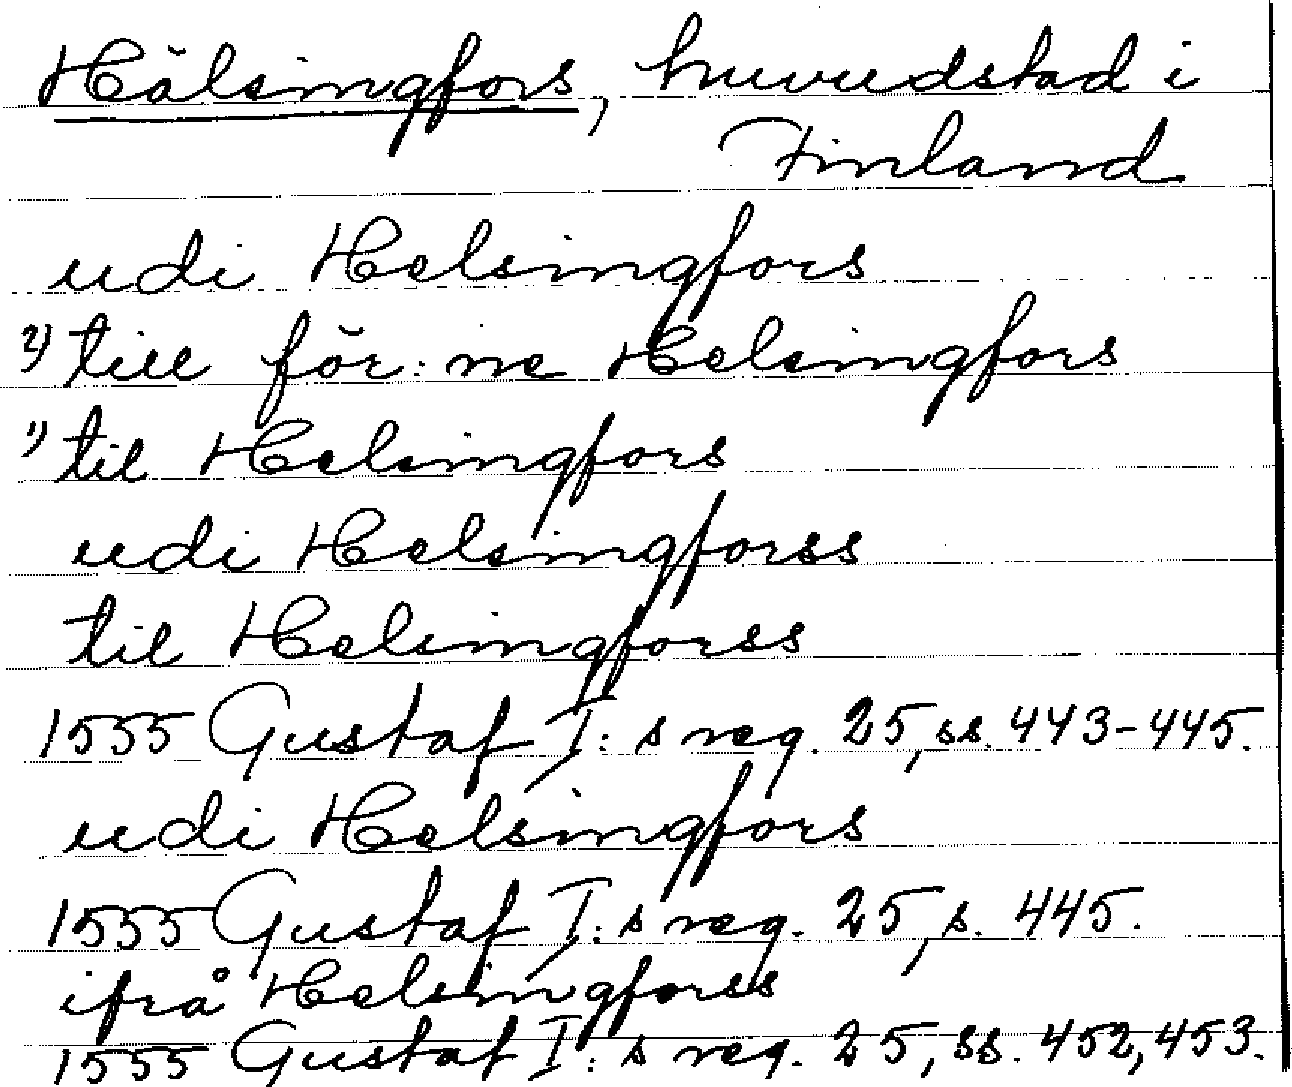 Hälsingfors, huvudstad i
Finland
udi Helsingfors
2) till för: ne Helsingfors
1) til Helsingfors
udi Helsingforss
til Helsingforss
1555 Gustaf I: s reg. 25, ss. 443-445.
udi Helsingfors
1555 Gustaf I: s reg. 25, s. 445.
ifrå Helsingforss
1555 Gustaf I: s reg. 25, ss. 452, 453.